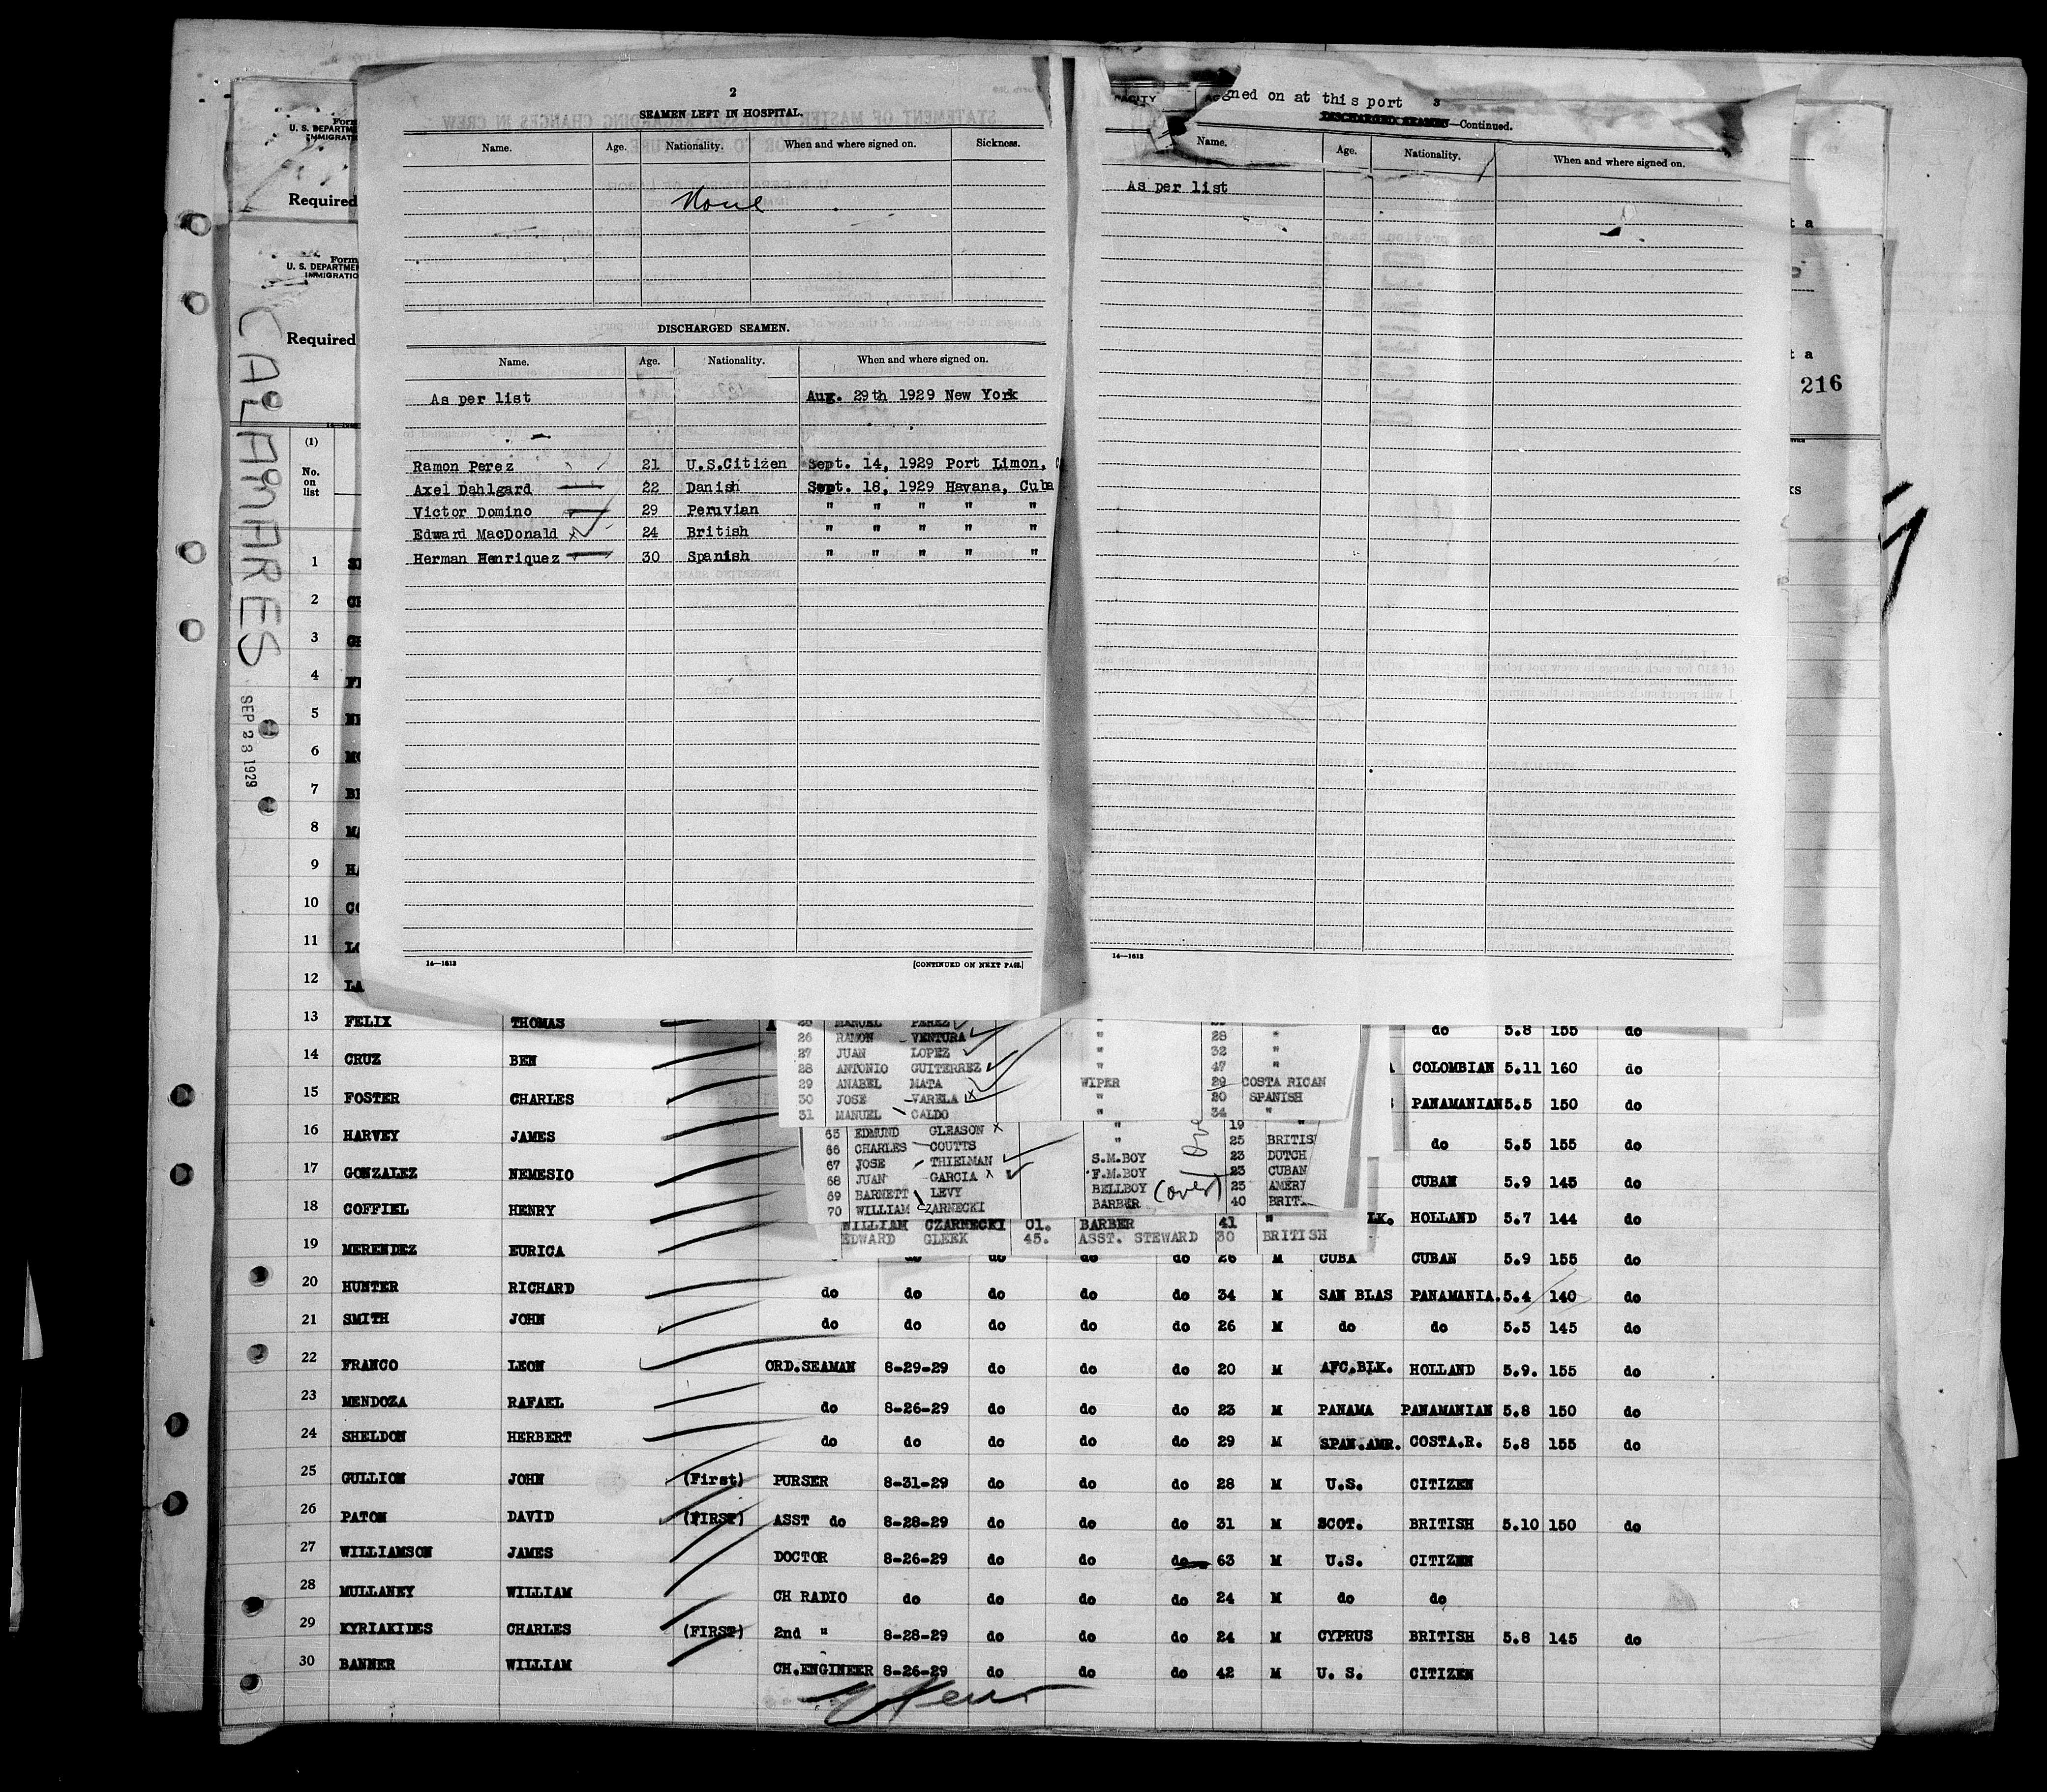 2
SEAMEN LEFT IN HOSPITAL.
Name. Age. Nationality. When and where signed on. Sickness.
None
DISCHARGED SEAMEN.
Name. Age. Nationality. When and where signed on.
As per list Aug. 29th 1929 New York
Ramon Perez 21 U.S.Citizen Sept. 14, 1929 Port Limon,
Axel Dahlgard 22 Danish Sept. 18, 1929 Havana, Cuba
Victor Domino 29 Peruvian " " " " "
Edward MacDonald x 24 British " " " " "
Herman Henriquez 30 Spanish " " " " "
14—1613 [CONTINUED ON NEXT PAGE.]
gned on at this port 3
DISCHARGED SEAMEN—Continued.
Name. Age. Nationality. When and where signed on.
As per list
14—1613
Form
U. S. DEPARTME
IMMIGRATIO
Required
Form
U. S. DEPARTME
IMMIGRATIO
Required
t a
t a
216
CALAMARES
SEP 23 1929
(1)
No.
on
list
ks
1
2
3
4
5
6
7
8
9
10
11
12 LA
13 FELIX THOMAS do 5.8 155 do
14 CRUZ BEN COLOMBIAN 5.11 160 do
15 FOSTER CHARLES PANAMANIAN 5.5 150 do
16 HARVEY JAMES do 5.5 155 do
17 GONZALEZ NEMESIO CUBAN 5.9 145 do
18 COFFIEL HENRY LK. HOLLAND 5.7 144 do
19 MERENDEZ EURICA do do do do do 26 M CUBA CUBAN 5.9 155 do
20 HUNTER RICHARD do do do do do 34 M SAN BLAS PANAMANIA. 5.4 140 do
21 SMITH JOHN do do do do do 26 M do do 5.5 145 do
22 FRANCO LEON ORD.SEAMAN 8-29-29 do do do 20 M AFC.BLK. HOLLAND 5.9. 155 do
23 MENDOZA RAFAEL do 8-26-29 do do do 23 M PANAMA PANAMANIAN 5.8 150 do
24 SHELDON HERBERT do do do do do 29 M SPAN.AMR. COSTA.R. 5.8 155 do
25 GULLION JOHN (First) PURSER 8-31-29 do do do 28 M U.S. CITIZEN
26 PATON DAVID (FIRST) ASST do 8-28-29 do do do 31 M SCOT. BRITISH 5.10 150 do
27 WILLIAMSON JAMES DOCTOR 8-26-29 do do do 63 M U.S. CITIZEN
28 MULLANEY WILLIAM CH RADIO do do do do 24 M do do
29 KYRIAKIDES CHARLES (FIRST) 2nd " 8-28-29 do do do 24 M CYPRUS BRITISH 5.8 145 do
30 BANNER WILLIAM CH.ENGINEER 8-26-29 do do do 42 M U. S. CITIZEN
25 MANUEL PEREZ "
26 RAMON VENTURA " 28 "
27 JUAN LOPEZ " 32 "
28 ANTONIO GUITERREZ " 47 "
29 ANABEL MATA WIPER 29 COSTA RICAN
30 JOSE VARELA x " 20 SPANISH
31 MANUEL CALDO " 34 "
65 EDMUND GLEASON x " 19 "
66 CHARLES COUTTS " 25 BRITIS
67 JOSE THIELMAN S.M.BOY 23 DUTCH
68 JUAN GARCIA x F.M.BOY 23 CUBAN
69 BARNETT LEVY BELLBOY (over) 23 AMER
70 WILLIAM CZARNECKI BARBER 40 BRIT
WILLIAM CZARNECKI 01. BARBER 41 "
EDWARD GLEEK 45. ASST. STEWARD 30 BRITISH